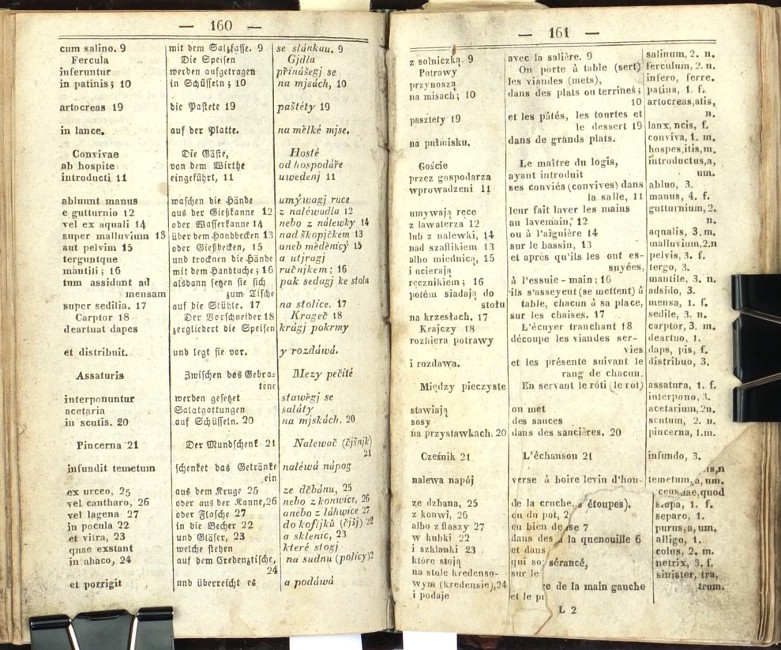 — 160 —
cum salino. 9
Fercula
inferuntur
in patinis; 10
artocreas 19
in lance.
Convivae
ab hospite
introducti 11
abluunt manus
e gutturnio 12
vel ex aquali 14
super malluvium 13
aut pelvim 15
terguntque
mantili; 16
tum assidunt ad
mensam
super sedilia. 17
Carptor 18
deartuat dapes
et distribuit.
Assaturis
interponuntur
acetaria
in scutis. 20
Pincerna 21
infundit temetum
ex urceo, 25
vel cantharo, 26
vel lagena 27
in pocula 22
et vitra, 23
quae exstant
in abaco, 24
et porrigit
mit dem Salzfasse. 9
Die Speisen
werden aufgetragen
in Schüsseln; 10
die Pastete 19
auf der Platte.
Die Gäste,
von dem Wirthe
eingeführt, 11
waschen die Hände
aus der Gießkanne 12
oder Wasserkanne 14
über dem Handbecken 13
oder Gießbecken, 15
und trocknen die Hände
mit dem Handtuche; 16
alsdann setzen sie sich
zum Tische
auf die Stühle. 17
Der Vorschneider 18
zergliedert die Speisen
und legt sie vor.
Zwischen das Gebra-
tene
werden gesetzt
Salatgattungen
auf Schüsseln. 20
Der Mundschenk 21
schenket das Getränke
ein
aus dem Kruge 25
oder aus der Kanne, 26
oder Flasche 27
in die Becher 22
und Gläser, 23
welche stehen
auf dem Credenztische,
24
und überreicht es
se slánkau. 9
Gjdla
přinášegj se
na mjsách, 10
paštéty 19
na mělké mjse.
Hosté
od hospodáře
uwedenj 11
umýwagj ruce
z naléwadla 12
nebo z nálewky 14
nad škopjčkem 13
aneb měděnicý 15
a utjragj
ručnjkem; 16
pak sedagj ke stola
na stolice. 17
Krageč 18
krágj pokrmy
y rozdáwá.
Mezy pečité
stawěgj se
saláty
na mjskách. 20
Nalewač (čjšnjk)
21
naléwá nápog
ze džbánu, 25
nebo z konwice, 26
anebo z láhwice 27
do kofljků (čjšj) 22
a sklenic, 23
které stogj
na sudnu (policy)
a podáwá
— 161 —
z solniczką. 9
Potrawy
przynoszą
na misach; 10
pasztety 19
na pułmisku.
Goście
przez gospodarza
wprowadzeni 11
umywają ręce
z lawaterza 12
lub z nalewki, 14
nad szaflikiem 13
albo miednicą, 15
i ucierają
ręcznikiem; 16
potém siadają do
stołu
na krzesłach. 17
Krajczy 18
rozbiera potrawy
i rozdawa.
Między pieczyste
stawiają
sosy
na przystawkach. 20
Cześnik 21
nalewa napój
ze dzbana, 25
z konwi, 26
albo z flaszy 27
w kubki 22
i szklanki 23
które stoją
na stole kredenso-
wym (kredensie), 24
i podaje
avec la salière. 9
On porte à table (sert)
les viandes (mets),
dans des plats ou terrines;
10
et les pâtés, les tourtes et
le dessert 19
dans de grands plats.
Le maître du logis,
ayant introduit
ses conviés (convives) dans
la salle, 11
leur fait laver les mains
au lavemain, 12
ou à l'aiguière 14
sur le bassin, 13
et après qu'ils les ont es-
suyées,
à l'essuie-main; 16
ils s'asseyent (se mettent) à
table, chacun à sa place,
sur les chaises. 17
L'écuyer tranchant 18
découpe les viandes ser-
vies
et les présente suivant le
rang de chacun.
En servant le rôti (le rôt)
on met
des sauces
dans des sancières. 20
L'échanson 21
verse à boire levin d'hon-
de la cruche, à étoupes).
ou du pot, 2
ou bien de
dans des à la quenouille 6
et dans
qui so sérancé,
sur le
de la main gauche
et le
salinum, 2. n.
ferculum, 2. n.
infero, ferre.
patina, 1. f.
artocreas, atis,
n.
lanx, ncis, f.
conviva, 1. m.
hospes, itis, m.
introductus, a,
um.
abluo, 3.
manus, 4. f.
gutturnium, 2.
n.
aqualis, 3. m.
malluvium, 2. n
pelvis, 3. f.
tergo, 3.
mantile, 3. n.
adsido, 3.
mensa, 1. f.
sedile, 3. n.
carptor, 3. m.
deartuo, 1.
daps, pis, f.
distribuo, 3.
assatura, 1. f.
interpono, 3.
acetarium, 2n.
scutum, 2. n.
pincerna, 1. m.
infundo, 3.
temetum, a, um.
quod
stupa, 1. f.
separo, 1.
purus, a, um.
alligo, 1.
colus, 2. m.
netrix, 3. f.
sinister, tra,
trum.
L 2